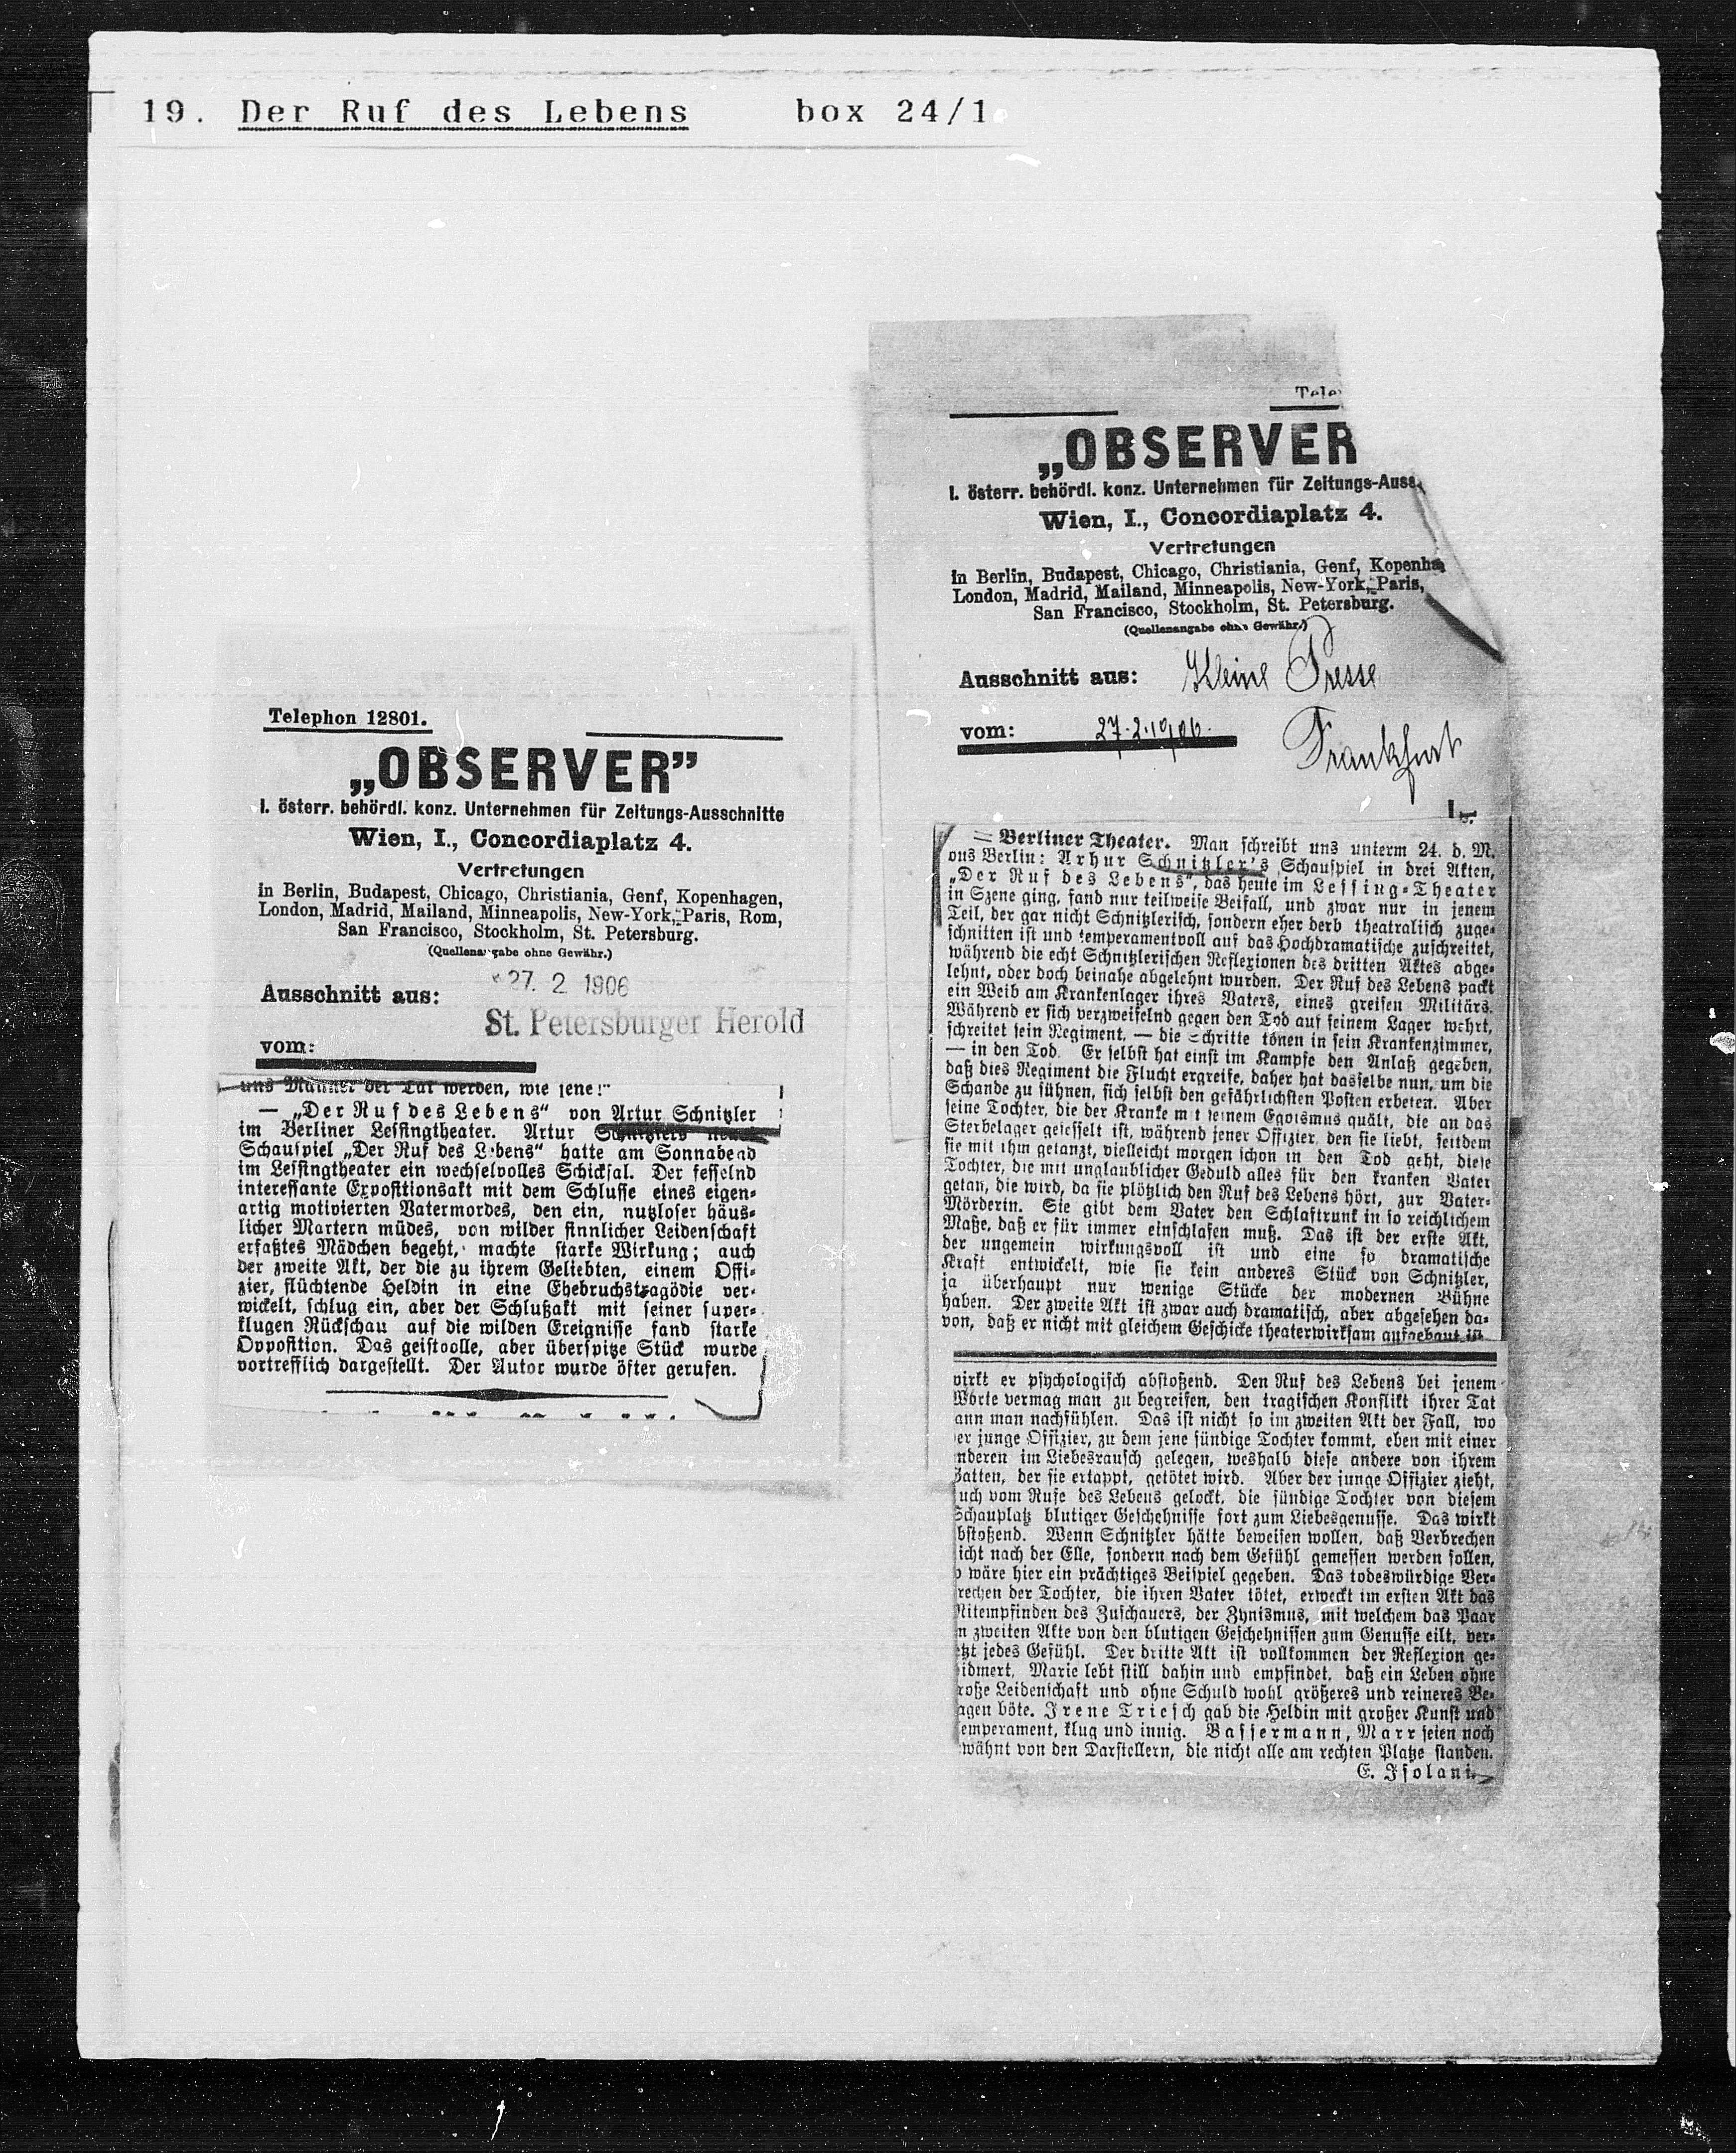 19. Der Ruf des Lebens box 24/1
Telephon 12801.
„OBSERVER”
I. österr. behördl. konz. Unternehmen für Zeitungs-Ausschnitte
Wien, I., Concordiaplatz 4.
Vertretungen
in Berlin, Budapest, Chicago, Christiania, Genf, Kopenhagen,
London, Madrid, Mailand, Minneapolis, New-York, Paris, Rom,
San Francisco, Stockholm, St. Petersburg.
(Quellenangabe ohne Gewähr.)
27. 2 1906
Ausschnitt aus:
St. Petersburger Herold
vom:
und Männer der Tat werden, wie jene!“
— „Der Ruf des Lebens“ von Artur Schnitzler
im Berliner Lessingtheater. Artur Schnitzlers neues
Schauspiel „Der Ruf des Lebens“ hatte am Sonnabend
im Lessingtheater ein wechselvolles Schicksal. Der fesselnd
interessante Expositionsakt mit dem Schlusse eines eigen-
artig motivierten Vatermordes, den ein, nutzloser häus-
licher Martern müdes, von wilder sinnlicher Leidenschaft
erfaßtes Mädchen begeht, machte starke Wirkung; auch
der zweite Akt, der die zu ihrem Geliebten, einem Offi-
zier, flüchtende Heldin in eine Ehebruchstragödie ver-
wickelt, schlug ein, aber der Schlußakt mit seiner super-
klugen Rückschau auf die wilden Ereignisse fand starke
Opposition. Das geistvolle, aber überspitze Stück wurde
vortrefflich dargestellt. Der Autor wurde öfter gerufen.
Tele
„OBSERVER
I. österr. behördl. konz. Unternehmen für Zeitungs-Auss
Wien, I., Concordiaplatz 4.
Vertretungen
in Berlin, Budapest, Chicago, Christiania, Genf, Kopenha
London, Madrid, Mailand, Minneapolis, New-York, Paris,
San Francisco, Stockholm, St. Petersburg.
(Quellenangabe ohne Gewähr.)
Ausschnitt aus: Kleine Presse
vom: 27.2.1906.
Frankfurt
= Berliner Theater. Man schreibt uns unterm 24. d. M.
aus Berlin: Arhur Schnitzler's Schauspiel in drei Akten,
„Der Ruf des Lebens“, das heute im Lessing-Theater
in Szene ging, fand nur teilweise Beifall, und zwar nur in jenem
Teil, der gar nicht Schnitzlerisch, sondern eher derb theatralisch zuge-
schnitten ist und temperamentvoll auf das Hochdramatische zuschreitet,
während die echt Schnitzlerischen Reflexionen des dritten Aktes abge-
lehnt, oder doch beinahe abgelehnt wurden. Der Ruf des Lebens packt
ein Weib am Krankenlager ihres Vaters, eines greisen Militärs.
Während er sich verzweifelnd gegen den Tod auf seinem Lager wehrt,
schreitet sein Regiment, — die Schritte tönen in sein Krankenzimmer,
— in den Tod. Er selbst hat einst im Kampfe den Anlaß gegeben,
daß dies Regiment die Flucht ergreife, daher hat dasselbe nun, um die
Schande zu sühnen, sich selbst den gefährlichsten Posten erbeten. Aber
seine Tochter, die der Kranke mit seinem Egoismus quält, die an das
Sterbelager gefesselt ist, während jener Offizier, den sie liebt, seitdem
sie mit ihm getanzt, vielleicht morgen schon in den Tod geht, diese
Tochter, die mit unglaublicher Geduld alles für den kranken Vater
getan, die wird, da sie plötzlich den Ruf des Lebens hört, zur Vater-
Mörderin. Sie gibt dem Vater den Schlaftrunk in so reichlichem
Maße, daß er für immer einschlafen muß. Das ist der erste Akt,
der ungemein wirkungsvoll ist und eine so dramatische
Kraft entwickelt, wie sie kein anderes Stück von Schnitzler,
ja überhaupt nur wenige Stücke der modernen Bühne
haben. Der zweite Akt ist zwar auch dramatisch, aber abgesehen da-
von, daß er nicht mit gleichem Geschicke theaterwirksam aufgebaut ist,
virkt er psychologisch abstoßend. Den Ruf des Lebens bei jenem
Worte vermag man zu begreifen, den tragischen Konflikt ihrer Tat
ann man nachfühlen. Das ist nicht so im zweiten Akt der Fall, wo
er junge Offizier, zu dem jene sündige Tochter kommt, eben mit einer
nderen im Liebesrausch gelegen, weshalb diese andere von ihrem
Gatten, der sie ertappt, getötet wird. Aber der junge Offizier zieht,
uch vom Rufe des Lebens gelockt, die sündige Tochter von diesem
Schauplatz blutiger Geschehnisse fort zum Liebesgenusse. Das wirkt
bstoßend. Wenn Schnitzler hätte beweisen wollen, daß Verbrechen
icht nach der Elle, sondern nach dem Gefühl gemessen werden sollen,
o wäre hier ein prächtiges Beispiel gegeben. Das todeswürdige Ver-
rechen der Tochter, die ihren Vater tötet, erweckt im ersten Akt das
Mitempfinden des Zuschauers, der Zynismus, mit welchem das Paar
n zweiten Akte von den blutigen Geschehnissen zum Genusse eilt, ver-
etzt jedes Gefühl. Der dritte Akt ist vollkommen der Reflexion ge-
idmert. Marie lebt still dahin und empfindet, daß ein Leben ohne
roße Leidenschaft und ohne Schuld wohl größeres und reineres Be-
agen böte. Irene Triesch gab die Heldin mit großer Kunst und
emperament, klug und innig. Bassermann, Marr seien noch
wähnt von den Darstellern, die nicht alle am rechten Platze standen.
E. Isolani.